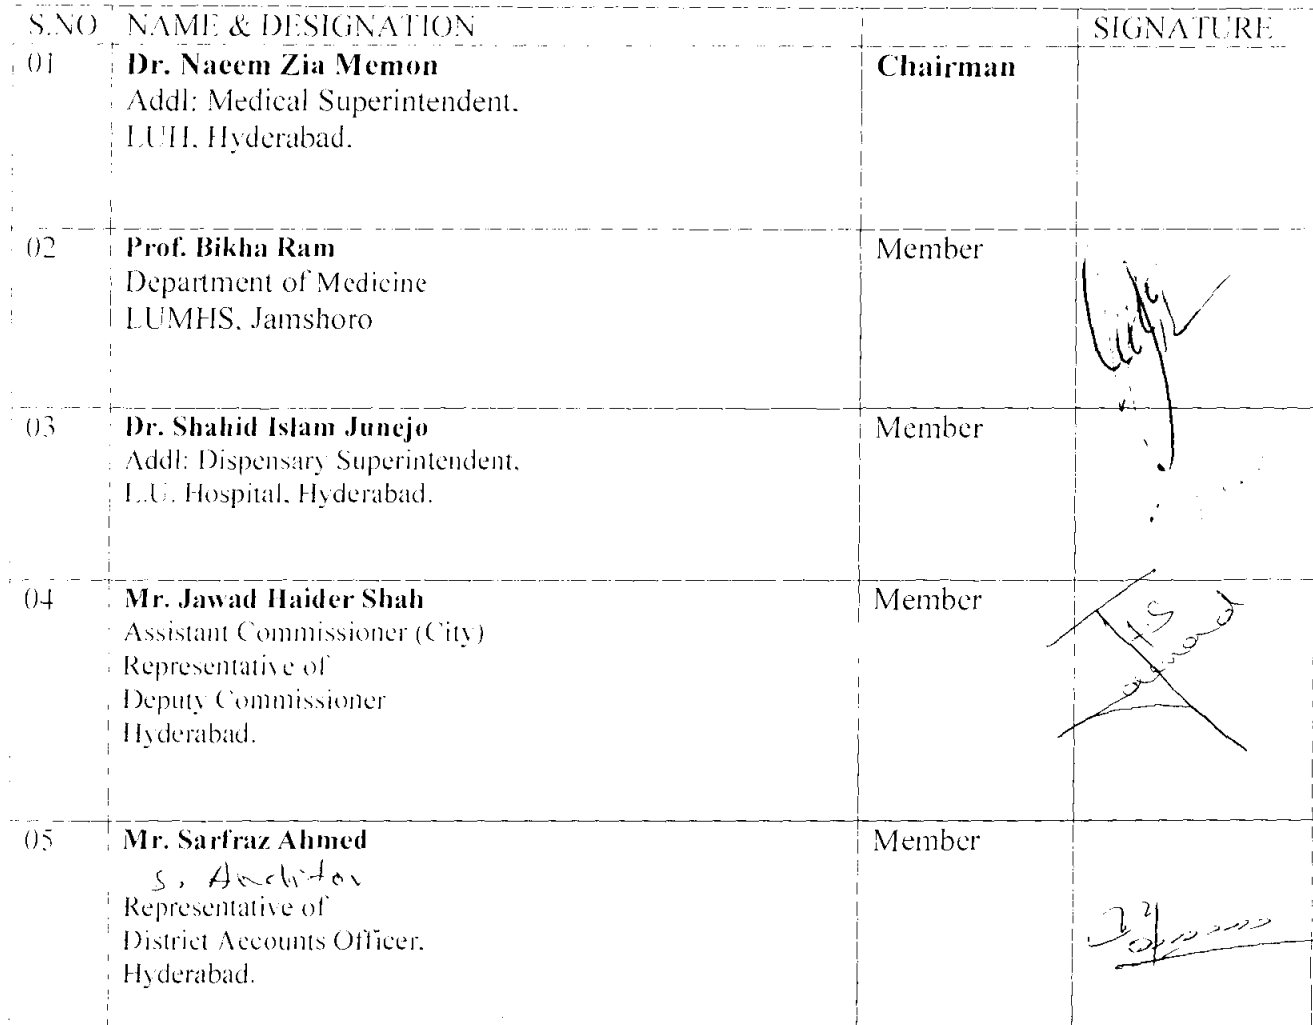 S.NO NAME & DESIGNATION SIGNATURE
01 Dr. Naeem Zia Memon Chairman
Addl: Medical Superintendent,
LUH, Hyderabad.
02 Prof. Bikha Ram Member
Department of Medicine
LUMHS, Jamshoro
03 Dr. Shahid Islam Junejo Member
Addl: Dispensary Superintendent,
L.U. Hospital, Hyderabad.
04 Mr. Jawad Haider Shah Member
Assistant Commissioner (City)
Representative of
Deputy Commissioner
Hyderabad.
05 Mr. Sarfraz Ahmed Member
S. Auditor
Representative of
District Accounts Officer,
Hyderabad.